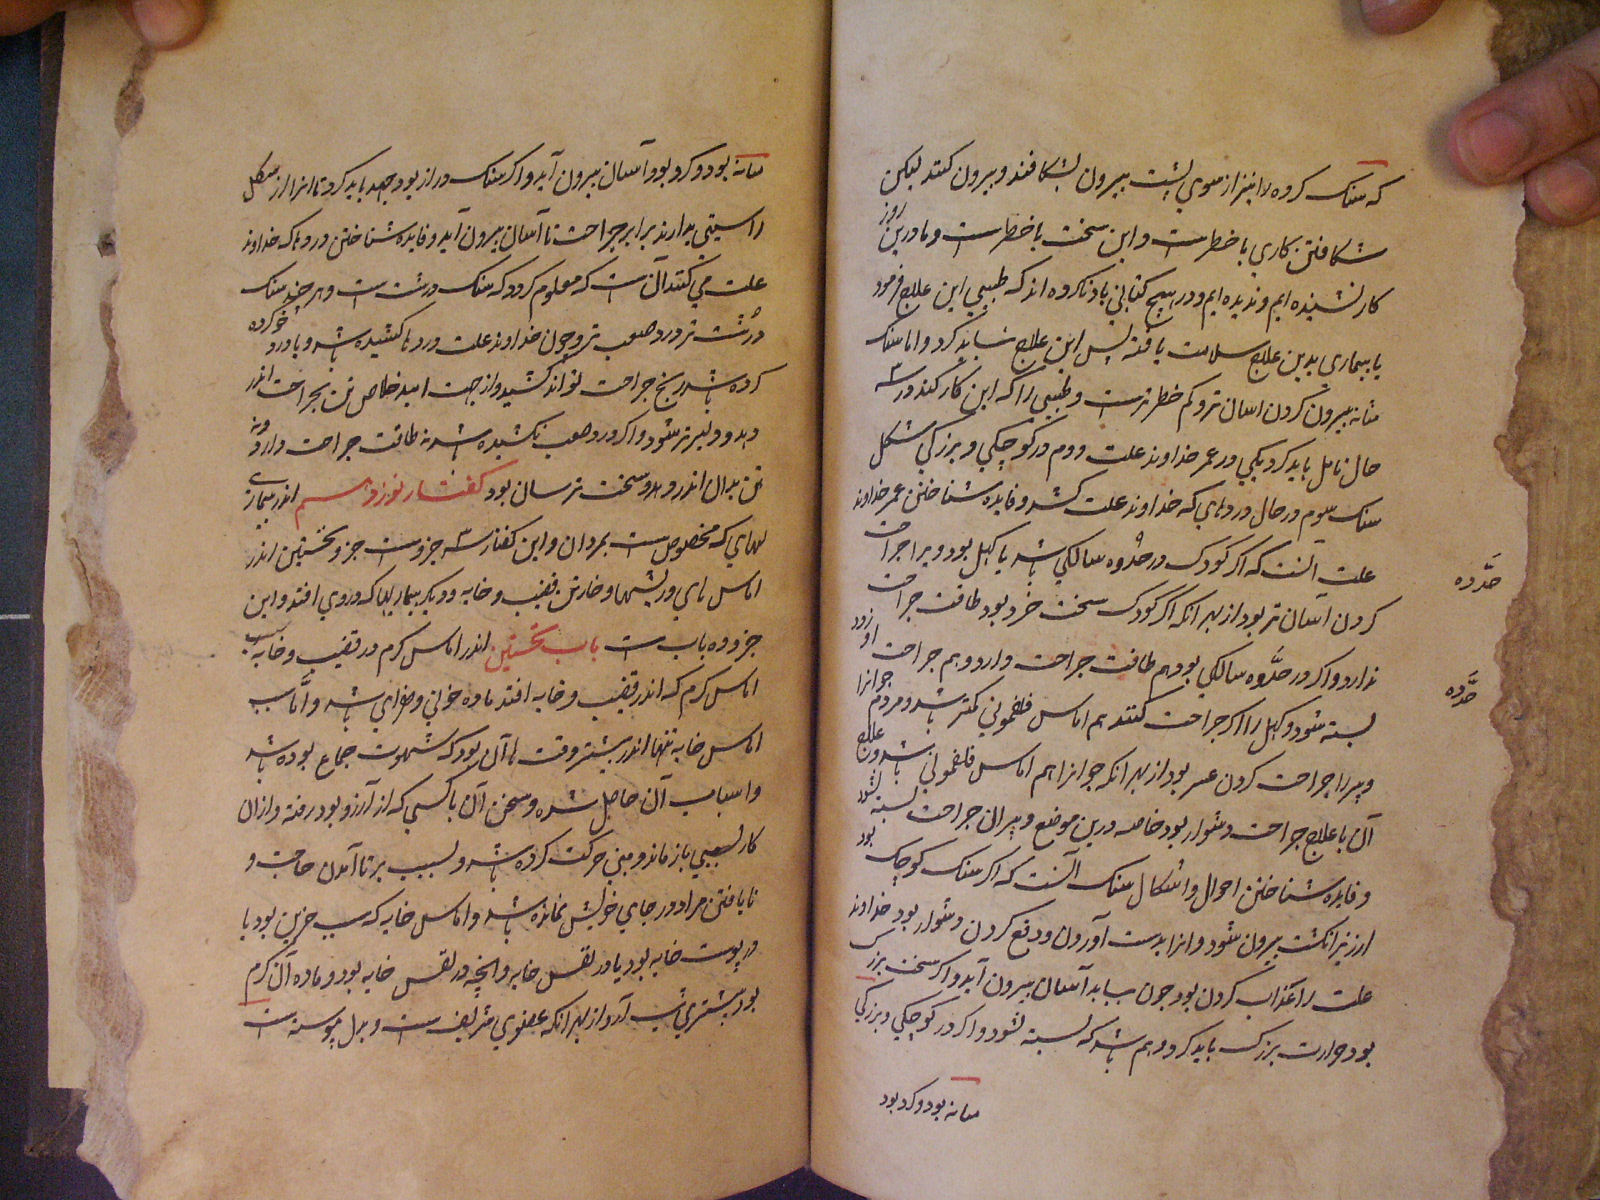 که سنک کرده را نیز از سوی پشت بیرون بشکافند و بیرون کنند لیکن
شکافتن کاری با خطرست و این سخت با خطرست و ما درین روز
کار نشنیده ایم و ندیده ایم و در هیچ کتابی یاد نکرده اند که طبیبی این علاج فرمود
یا بیماری بدین علاج سلامت یافته پس این علاج نشاید کرد و اما سنک
مثانه بیرون کردن اسان تر و کم خطرترست و طبیبی را که این کار کند در سه
حال تامل باید کرد یکی در عمر خداوند علت دوم در کوچکی و بزرکی شکل
سنک سیوم در حال دردهای که خداوند علت کشد و فایده شناختن عمر خداوند
علت آنست که اکر کودک در حدوه سالکی باشد یا کهل بود ویرا جراحت
کردن آسان تر بود از بهر انکه اکر کودک سخت خرد بود طاقت جراحت
ندارد و اکر در حدوه سالکی بود هم طاقت جراحت دارد و هم جراحت او زود
بسته شود و کهل را اکر جراحت کنند هم اماس فلغمونی کمتر باشد و مردم جوانرا
و پیر را جراحت کردن عسر بود از بهر انکه جوانرا هم اماس فلغمونی باشد و علاج
آن با علاج جراحت دشوار بود خاصه درین موضع و پیران جراحت بسته نشود
و فایده شناختن احوال و اشکال سنک آنست که اکر سنک کوچک بود
از زیر انکشت بیرون شود و انرا بدست آوردن و دفع کردن دشوار بود خداوند
علت را عذاب کردن بود چون بیابد آسان بیرون آید و اکر سخت بزرک
بود جراحت بزرک باید کرد و هم باشد که بسته نشود و اکر در کوچکی و بزرکی
میانه بود و کرد بود
حدوه
حدوه
میانه بود و کرد بود آسان بیرون آید و اکر سنک دراز بود جهد باید کرد تا انرا از شکل
راستی بدارند برابر جراحت تا آسان بیرون آید و فایده شناختن دردها که خداوند
علت می کشد آن است که معلوم کردد که سنک درشت است و هر چند سنک
درشت تر درد صعب تر و چون خداوند علت دردها کشیده باشد و با درد خو کرده
کرده باشد رنج جراحت تواند کشید و از جهت امید خلاص تن بجراحت اندر
دهد و دلیرتر شود و اکر درد صعب نکشیده باشد نه طاقت جراحت دارد و نه
تن بدان اندر دهد و سخت ترسان بود کفتار نوزدهم اندر بیماری
لهای که مخصوص ست بمردان و این کفتار سه جزوست جزو نخستین اندر
اماس های و ریشها و خارش قضیب و خایه و دیکر بیماریها که در وی افتد و این
جزو ده باب ست باب نخستین اندر اماس کرم در قضیب و خایه سبب
اماس کرم که اندر قضیب و خایه افتد ماده خونی و صفرای باشد و اما سبب
اماس خایه تنها اندر بیشتر وقت ها آن بود که شهوت جماع بوده باشد
و اسباب آن حاصل شده و سخن آن با کسی که از آرزو بود رفته و ازان
کار بسببی باز ماند و منی حرکت کرده باشد و بسبب بر نا آمدن حاجت و
نا یافتن مراد در جای خویش بمانده باشد و اماس خایه که سبب جزین بود یا
در پوست خایه بود یا در نفس خایه و انچه در نفس خایه بود و ماده آن کرم
بود بیشتری تب آرد از بهر انکه عضوی شریف ست و بدل پیوسته ست